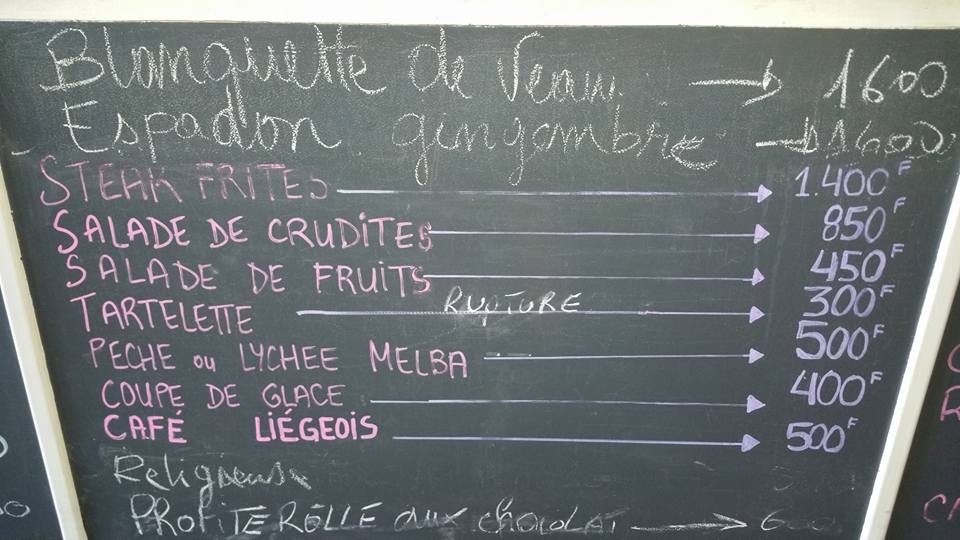 Blanquette de Veau → 1600
Espadon gingembre → 1600
STEAK FRITES → 1400F
SALADE DE CRUDITES → 850F
SALADE DE FRUITS → 450F
TARTELETTE RUPTURE → 300F
PECHE ou LYCHEE MELBA → 500F
COUPE DE GLACE → 400F
CAFÉ LIÉGEOIS → 500F
Religieuse
PROFITEROLLE aux chocolat →